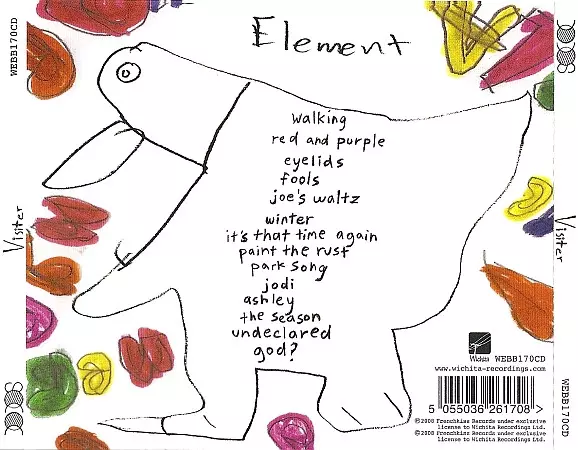 WEBB170CD
Visiter
Element
walking
red and purple
eyelids
fools
joe's waltz
winter
it's that time again
paint the rust
park song
jodi
ashley
the season
undeclared
god?
Wichita WEBB170CD
www.wichita-recordings.com
5 055036 261708 >
©2008 Frenchkiss Records under exclusive
license to Wichita Recordings Ltd.
℗2008 Frenchkiss Records under exclusive
license to Wichita Recordings Ltd.
Visiter
WEBB170CD